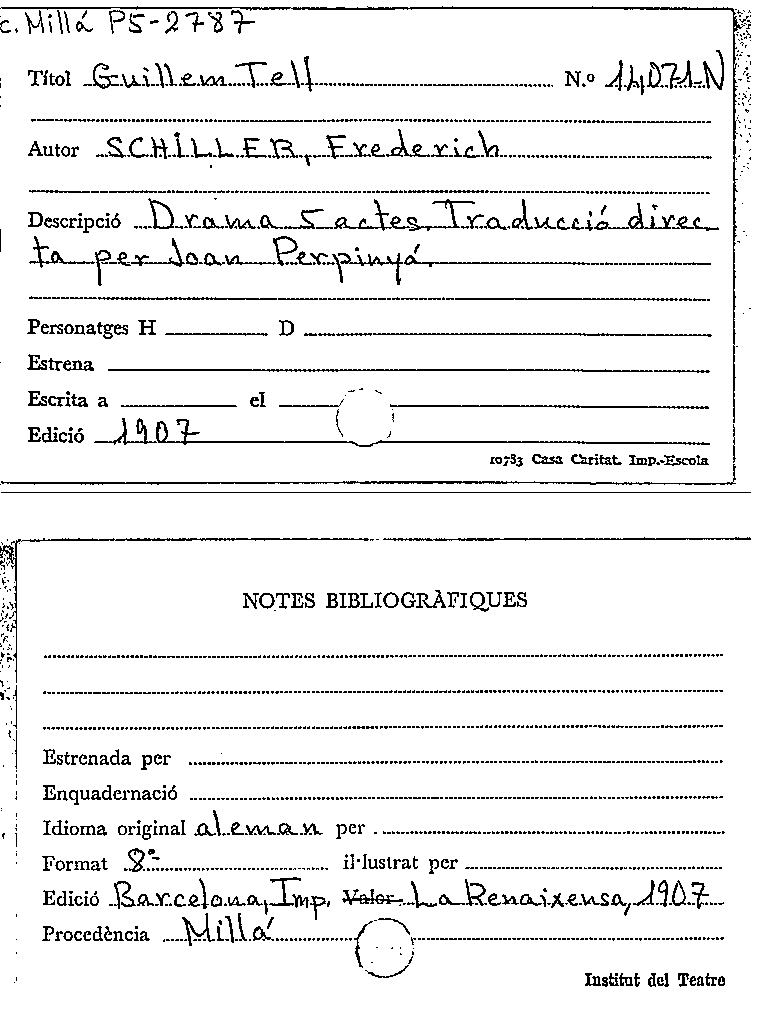 c. Millá PS-2787
Títol Guillem Tell N.º 14,071-N
Autor SCHILLER, Frederich
Descripció Drama 5 actes. Traducció direc
ta per Joan Perpinyá.
Personatges H D
Estrena
Escrita a el
Edició 1907
10783 Casa Caritat. Imp.-Escola
NOTES BIBLIOGRÀFIQUES
Estrenada per
Enquadernació
Idioma original aleman per
Format 8º- il·lustrat per
Edició Barcelona, Imp. Valor. La Renaixensa, 1907
Procedència Millá
Institut del Teatre